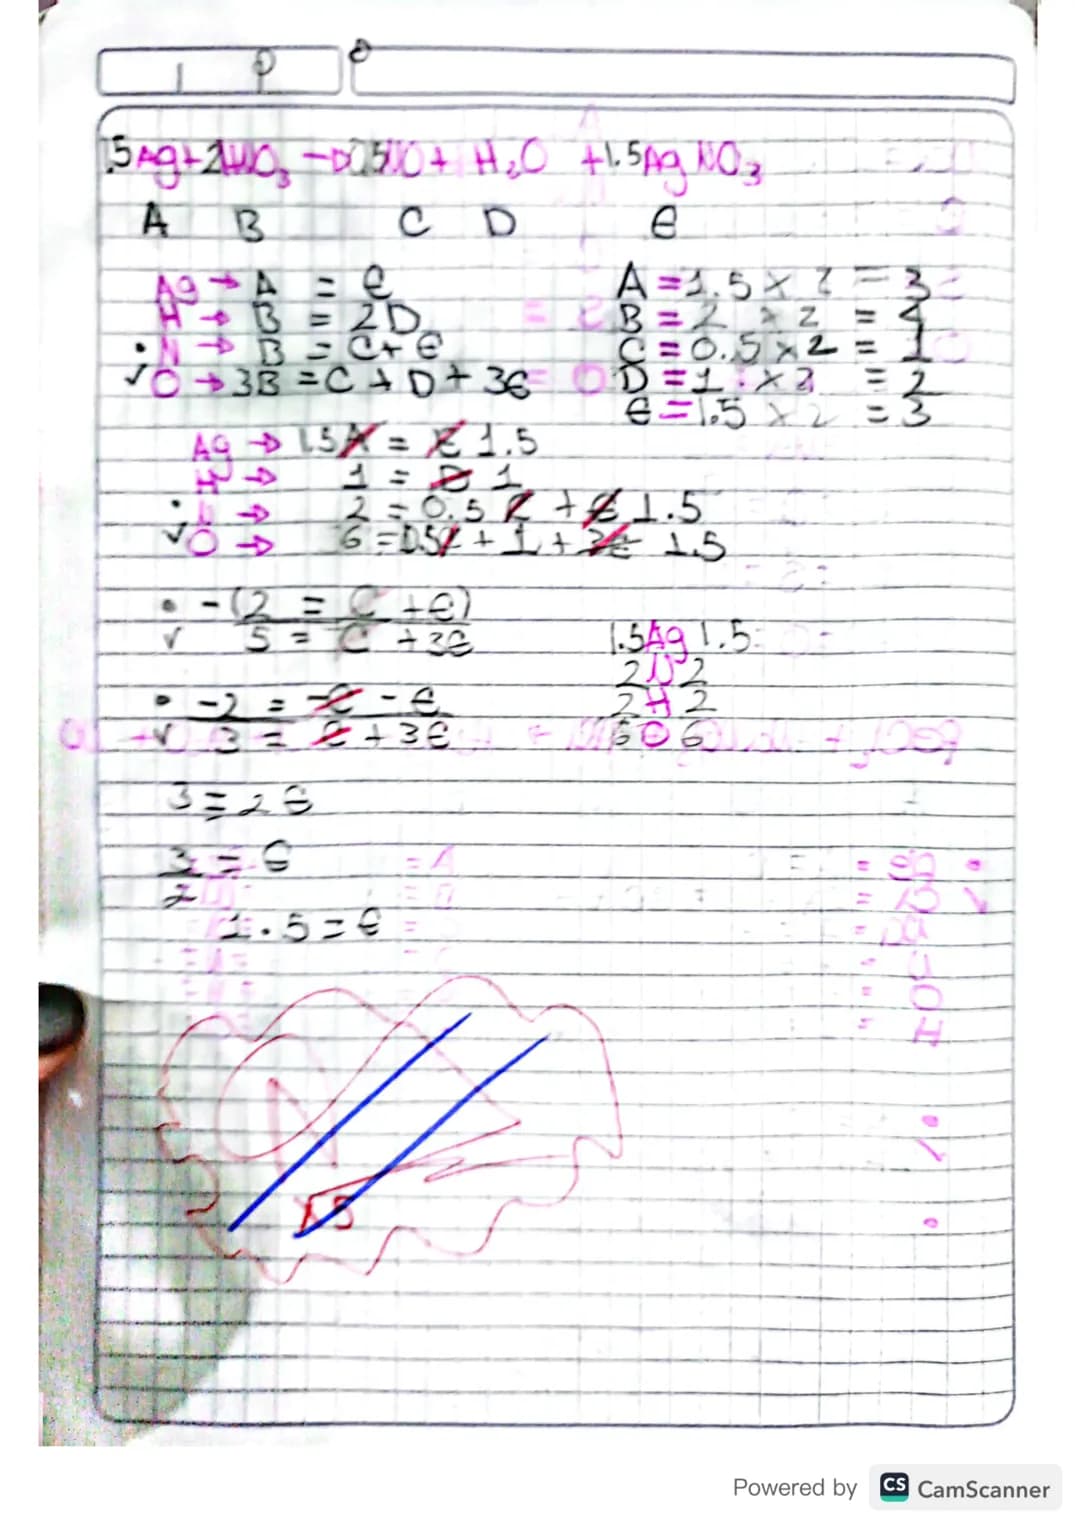 1.5Ag+2HNO3 → 0.5NO + H2O +1.5AgNO3
A B C D e
Ag → A = e
H → B = 2D
• N → B = C+e
✓ O → 3B = C + D + 3e
A = 1.5 x 2 = 3
B = 2 x 2 = 4
C = 0.5 x 2 = 1
D = 1 x 2 = 2
e = 1.5 x 2 = 3
Ag → 1.5A = E 1.5
H → 1 = D 1
• N → 2 = 0.5 C + E 1.5
✓ O → 6 = 0.5C + 1 + 3E 1.5
• -(2 = C +e)
✓ 5 = C + 3e
• -2 = -C - e
✓ 3 = C + 3e
1.5 Ag 1.5
2 N 2
2 H 2
6 O 6
3 = 2e
3/2 = e
1.5 = e
Powered by CS CamScanner